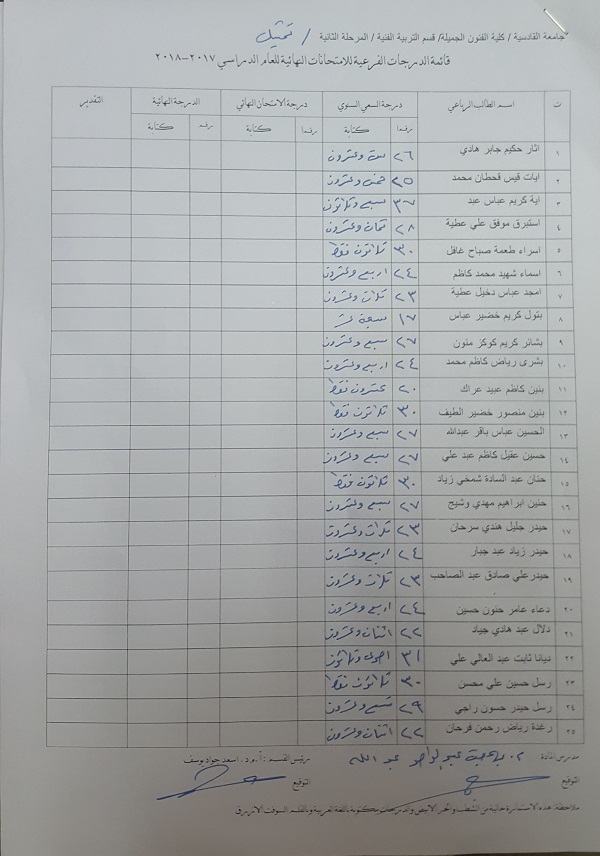 جامعة القادسية / كلية الفنون الجميلة / قسم التربية الفنية / المرحلة الثانية / تمثيل
قائمة الدرجات الفرعية للامتحانات النهائية للعام الدراسي ٢٠١٧-٢٠١٨
ت اسم الطالب الرباعي درجة السعي السنوي درجة الامتحان النهائي الدرجة النهائية التقدير
رقما كتابة رقما كتابة رقما كتابة
١ اثار حكيم جابر هادي ٢٦ ست وعشرون
٢ ايات قيس قحطان محمد ٢٥ خمس وعشرون
٣ اية كريم عباس عبد ٣٧ سبع وثلاثون
٤ استبرق موفق علي عطية ٢٨ ثمان وعشرون
٥ اسراء طعمة صباح غافل ٣٠ ثلاثون فقط
٦ اسماء شهيد محمد كاظم ٢٤ اربع وعشرون
٧ امجد عباس دخيل عطية ٢٣ ثلاث وعشرون
٨ بتول كريم خضير عباس ١٧ سبعة عشر
٩ بشائر كريم كوكز منون ٢٧ سبع وعشرون
١٠ بشرى رياض كاظم محمد ٢٤ اربع وعشرون
١١ بنين كاظم عبيد عراك ٢٠ عشرون فقط
١٢ بنين منصور خضير الطيف ٣٠ ثلاثون فقط
١٣ الحسين عباس باقر عبدالله ٢٧ سبع وعشرون
١٤ حسين عقيل كاظم عبد علي ٢٧ سبع وعشرون
١٥ حنان عبد السادة شمخي زياد ٣٠ ثلاثون فقط
١٦ حنين ابراهيم مهدي وشيج ٢٧ سبع وعشرون
١٧ حيدر جليل هندي سرحان ٢٣ ثلاث وعشرون
١٨ حيدر زياد عبد جبار ٢٤ اربع وعشرون
١٩ حيدر علي صادق عبد الصاحب ٢٣ ثلاث وعشرون
٢٠ دعاء عامر حنون حسين ٢٤ اربع وعشرون
٢١ دلال عبد هادي جياد ٢٢ اثنان وعشرون
٢٢ ديانا ثابت عبد العالي علي ٣١ احدى وثلاثون
٢٣ رسل حسين علي محسن ٣٠ ثلاثون فقط
٢٤ رسل حيدر حسون راجي ٢٩ تسع وعشرون
٢٥ رغدة رياض رحمن فرحان ٢٢ اثنان وعشرون
مدرس المادة عبد الواحد عبد الله رئيس القسم : أ.م.د. اسعد جواد يوسف
التوقيع التوقيع
ملاحظة: هذه الاستمارة خالية من الشطب والحبر الابيض والدرجات مكتوبة باللغة العربية وبالقلم السوفت الازرق